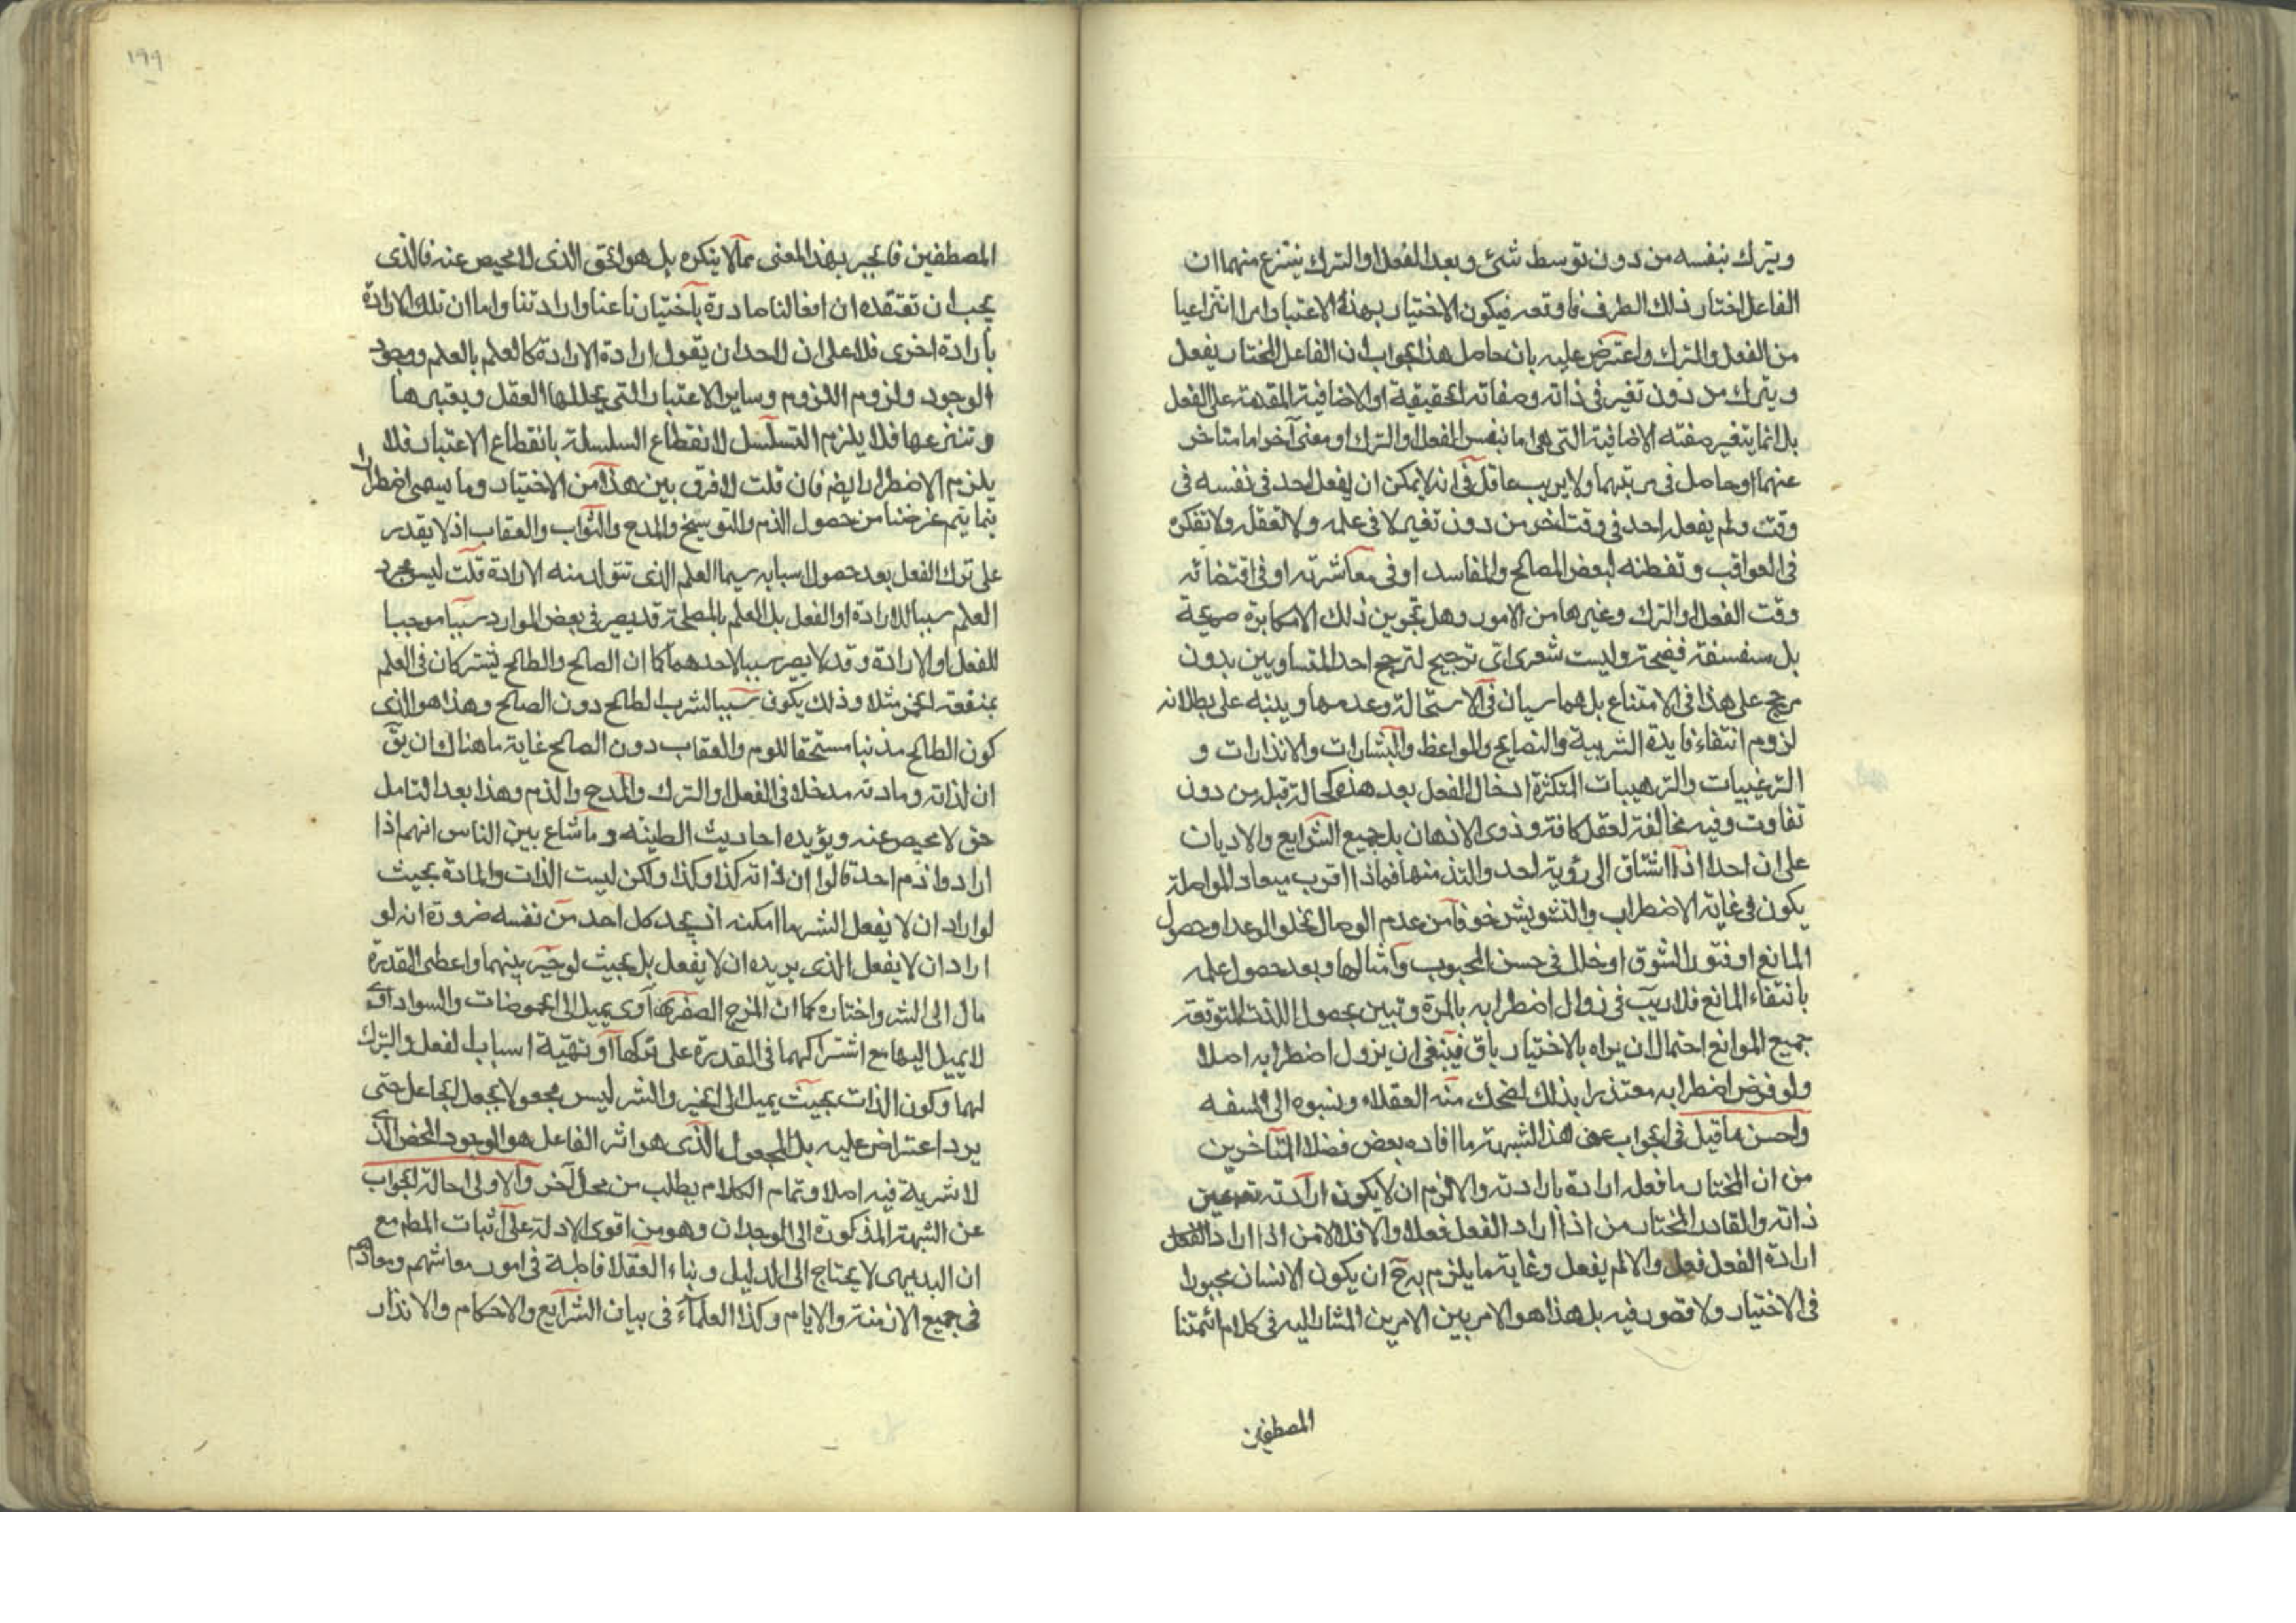 ويترك بنفسه من دون توسط شئ وبعد الفعل او الترك ينتزع منهما ان
الفاعل اختار ذلك الطرف فاوقعه فيكون الاختيار بهذه الاعتبار امرا انتزاعيا
من الفعل والترك واعترض عليه بان حاصل هذا الجواب ان الفاعل المختار يفعل
ويترك من دون تغير في ذاته وصفاته الحقيقية او الاضافية المقدمة على الفعل
بل انما يتغير صفته الاضافية التي هي اما بنفس الفعل او الترك او معنى آخر اما متاخر
عنهما او حاصل في مرتبتهما ولا يريب عاقل في انه لا يمكن ان يفعل احد في نفسه في
وقت ولم يفعل احد في وقت اخر من دون تغير لا في علمه ولا تعقله ولا تفكره
في العواقب وتفطنه لبعض المصالح والمفاسد او في معاشرته او في اقتضائه
وقت الفعل او الترك وغيرها من الامور وهل تجويز ذلك الا مكابرة صريحة
بل سفسفة فضيحة وليت شعري اي ترجيح لترجح احد المتساويين بدون
مرجح على هذا في الامتناع بل هما سيان في الاستحالة وعدمها وينبه على بطلانه
لزوم انتفاء فايدة الشربية والنصايح والمواعظ والبشارات والانذارات و
الترغيبات والترهيبات المتكثرة ادخال الفعل بعد هذه كحالة قبله من دون
تفاوت وفيه مخالفة لعقل كافة وذوى الاذهان بل جميع الشرايع والاديان
على ان احدا اذا اشتاق الى رؤية احد والتذ منها فماذا اقرب ميعاد المواصلة
يكون في غاية الاضطراب والتشويش خوفا من عدم الوصال لخلو الوعد او حصول
المانع او فتور الشوق او خلل في حسن المحبوب وامثالها وبعد حصول علمه
بانتفاء المانع فلا ريب في زوال اضطرابه بالمرة وتبين بحصول اللذت المتوقعة
جميع الموانع احتمال ان يراه بالاختيار باق فينبغى ان يزول اضطرابه اصلا
ولو فرض اضطرابه معتذرا بذلك لضحك منه العقلاء ونسبوه الى السفه
واحسن ما قيل في الجواب عن هذا الشبهة ما افاده بعض فضلا المتاخرين
من ان المختار ما فعل ارادة بارادته والا لزم ان لا يكون ارادته تعم عين
ذاته والقادر المختار من اذا اراد الفعل فعل والا فلا لا من اذا اراد الفعل
ارادة الفعل فعل والا لم يفعل وغاية ما يلزم به ح ان يكون الانسان مجبورا
في الاختيار ولا قصور فيه بل هذا هو الامر بين الامرين المشار اليه في كلام ائمتنا
المصطفين
١٩٩
المصطفين فالجبر بهذا المعنى مما لا ينكره بل هو الحق الذى لا محيص عنه فالذى
يجب ان تعتقده ان افعالنا صادرة باختيارنا عنا وارادتنا واما ان تلك الارادة
بارادة اخرى فلا على ان لاحد ان يقول ارادة الارادة كالعلم بالعلم ووجود
الوجود ولزوم اللزوم وساير الاعتبارات التي يحللها العقل ويعتبرها
وتنتزعها فلا يلزم التسلسل لانقطاع السلسلة بانقطاع الاعتبار فلا
يلزم الاضطرار ايضم فان قلت لا فرق بين هذا من الاختيار وما يسمى اضطرارا
فيما يتم غرضنا من حصول الذم والتوبيخ والمدح والثواب والعقاب اذ لا يقدر
على ترك الفعل بعد حصول اسبابه سيما العلم الذى تتولد منه الارادة قلت ليس مجرد
العلم سببا للارادة او الفعل بل العلم بالمصلحة قد يصير في بعض الموارد سببا موجبا
للفعل او الارادة وقد لا يصير سببا لاحدهما كما ان الصالح والطالح يشتركان في العلم
بمنفعة الخمر مثلا وذلك يكون سببا لشرب الطالح دون الصالح وهذا هو الذى
كون الطالح مذنبا مستحقا للوم والعقاب دون الصالح غاية ما هناك ان يق
ان لذاته ومادته مدخلا في الفعل او الترك والمدح والذم وهذا بعد التامل
حق لا محيص عنه ويؤيده احاديث الطينه وما شاع بين الناس انهم اذا
ارادوا ذم احد قالوا ان ذاته كذا وكذا ولكن ليست الذات والمادة بحيث
لو اراد ان لا يفعل الشر ما امكنه اذ يجد كل احد من نفسه ضرورة انه لو
اراد ان لا يفعل الذى يريده ان لا يفعل بل بحيث لو خير بينهما واعطى القدرة
مال الى الشر واختاره كما ان المزج الصفراوى يميل الى الحموضات والسوداوى
لا يميل اليها مع اشتراكهما في القدرة على تركها او تهيّة اسباب الفعل والترك
لهما وكون الذات بحيث يميل الى الخير والشر ليس مجعولا بجعل الجاعل حتى
يرد اعتراض عليه بل المجعول الذى هو اثر الفاعل هو الوجود المحض الذى
لا شرية فيه اصلا وتمام الكلام يطلب من محل آخر والاولى احالة الجواب
عن الشبهة المذكورة الى الوجدان وهو من اقوى الادلة على اثبات المطم مع
ان البديهى لا يحتاج الى الدليل وبناء العقلا فاطبة في امور معاشهم ومعادهم
في جميع الازمنة والايام وكذا العلماء في بيان الشرايع والاحكام والانذار